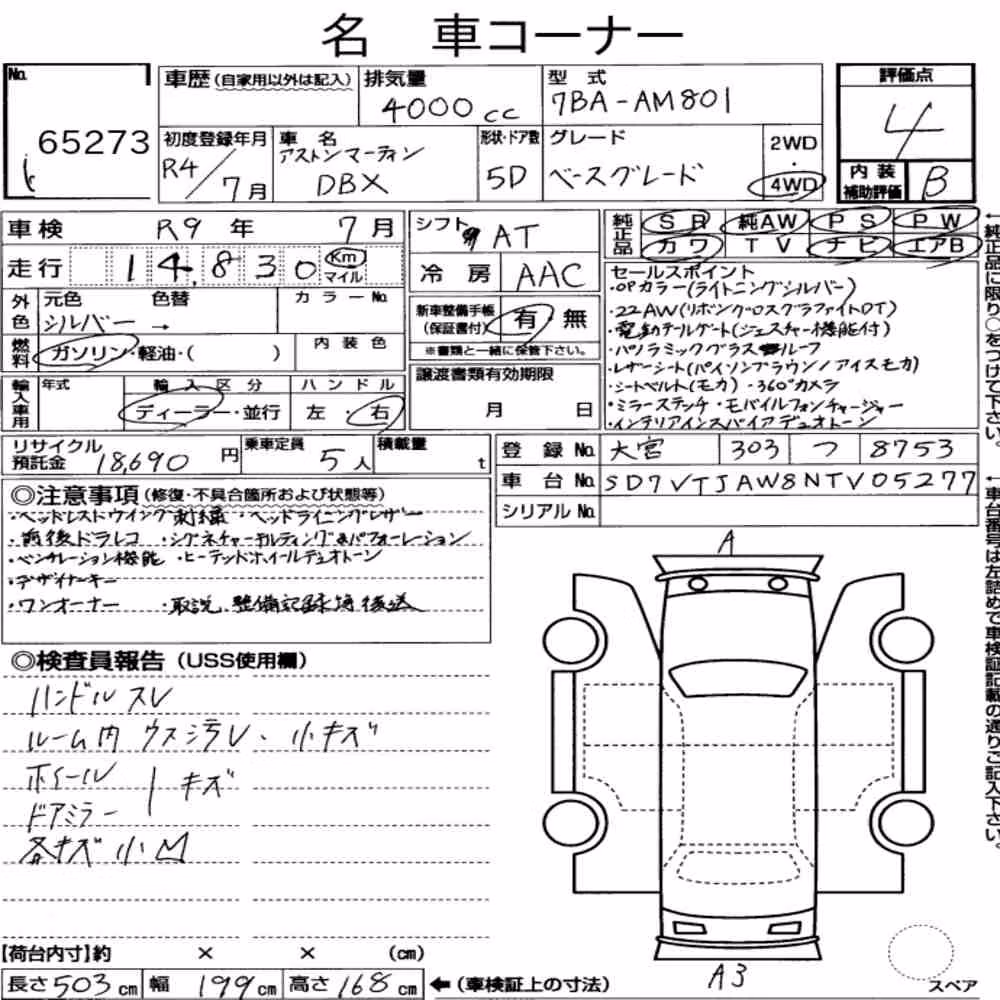 名 車コーナー
No.
65273
車歴(自家用以外は記入)
排気量
4000cc
型式
7BA-AM801
評価点
4
初度登録年月
R4/7月
車名
アストンマーティン
DBX
形状・ドア数
5D
グレード
ベースグレード
2WD
・
4WD
内装
補助評価
B
車検 R9年 7月
走行 14,830 Km
マイル
シフト AT
冷房 AAC
純正品
SR 純AW PS PW
カワ TV ナビ エアB
←純正品に限り○をつけて下さい。
外色
元色 色替
シルバー →
カラーNo.
燃料
ガソリン・軽油・( )
内装色
新車整備手帳
(保証書付)
有・無
※書類と一緒に保管下さい。
セールスポイント
・OPカラー(ライトニングシルバー)
・22AW(リボンクロスグラファイトDT)
・電動テールゲート(ジェスチャー機能付)
・パノラミックグラスルーフ
・レザーシート(パイソンブラウン/アイスモカ)
・シートベルト(モカ)・360°カメラ
・ミラーステッチ・モバイルフォンチャージャー
・インテリアインスパイアデュオトーン
輸入車用
年式
輸入区分
ディーラー・並行
ハンドル
左・右
譲渡書類有効期限
月 日
リサイクル
預託金
18,690円
乗車定員
5人
積載量
t
登録No. 大宮 303 つ 8753
車台No. SD7VTJAW8NTV05277
シリアルNo.
←車台番号は左詰めで車検証記載の通りご記入下さい。
◎注意事項(修復・不具合箇所および状態等)
・ヘッドレストウイング刺繍・ヘッドライニングレザー
・前後ドラレコ ・シグネチャーキルティング&パフォーレーション
・ベンチレーション機能 ・ヒーテッドホイールデュオトーン
・デザイナーキー
・ワンオーナー ・取説、整備記録簿後送
◎検査員報告(USS使用欄)
ハンドルスレ
ルーム内 ウス汚レ、小キズ
ホイール
ドアミラー
キズ
各キズ小凹
A
A3
【荷台内寸】約 × × (cm)
長さ503cm 幅199cm 高さ168cm ←(車検証上の寸法)
スペア